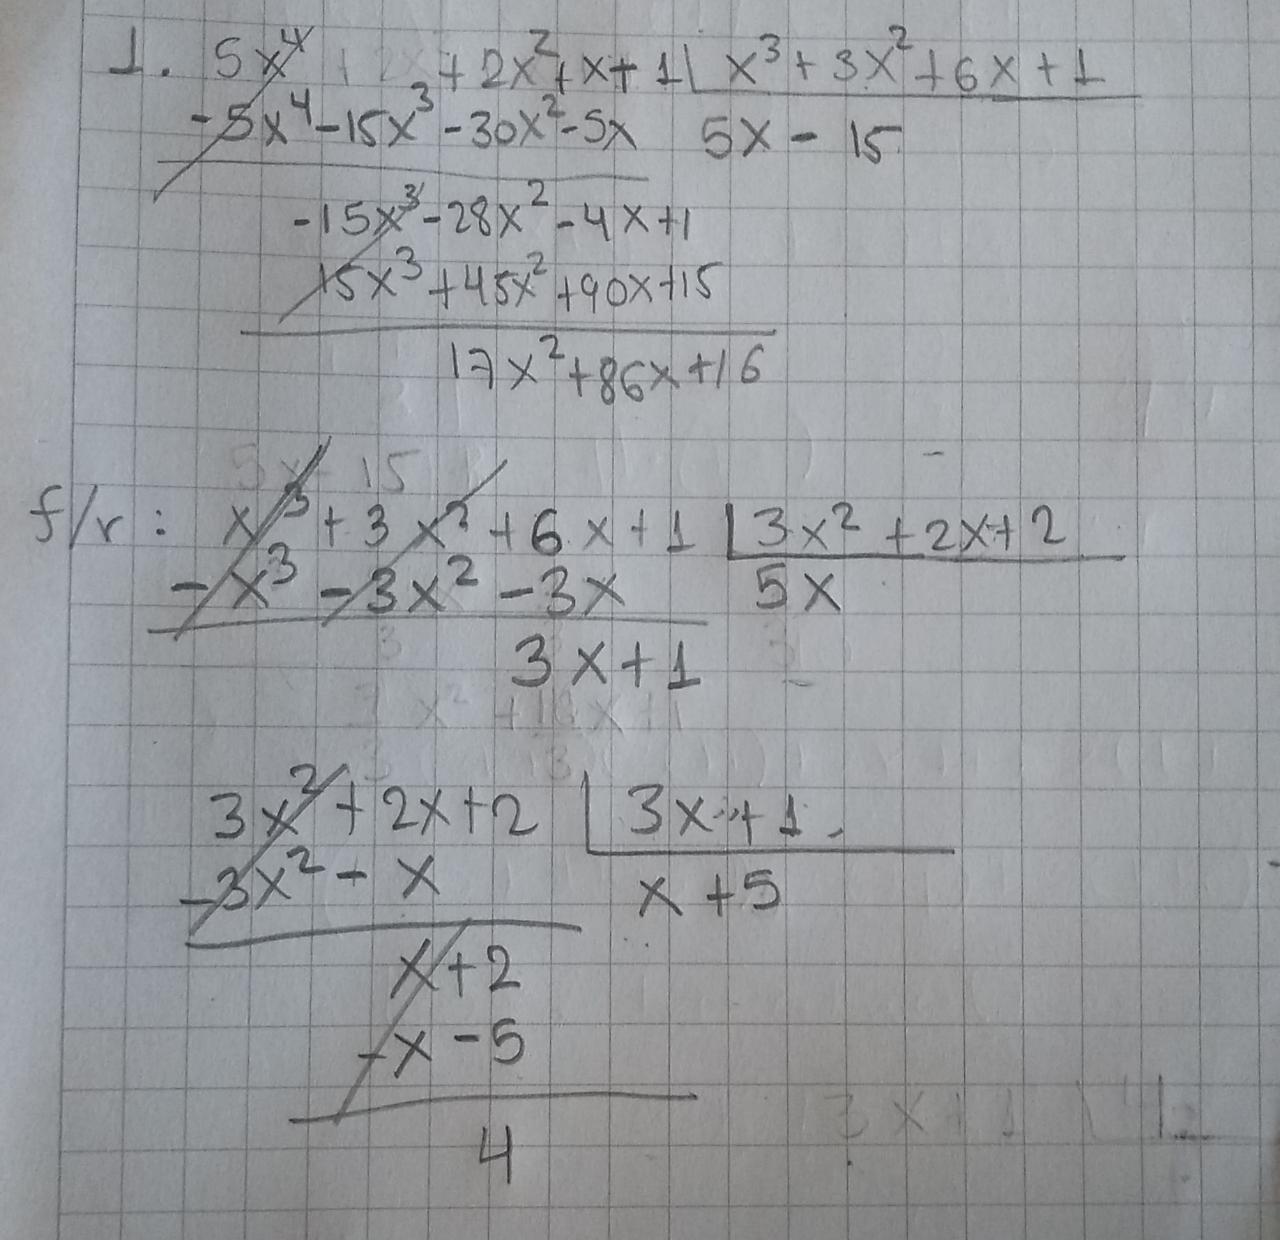 1. 5x⁴ + 2x² + x + 1 | x³ + 3x² + 6x + 1
-5x⁴ - 15x³ - 30x² - 5x 5x - 15
-15x³ - 28x² - 4x + 1
15x³ + 45x² + 90x + 15
17x² + 86x + 16
f/r: x³ + 3x² + 6x + 1 | 3x² + 2x + 2
-x³ - 3x² - 3x 5x
3x + 1
3x² + 2x + 2 | 3x + 1
-3x² - x x + 5
x + 2
-x - 5
4